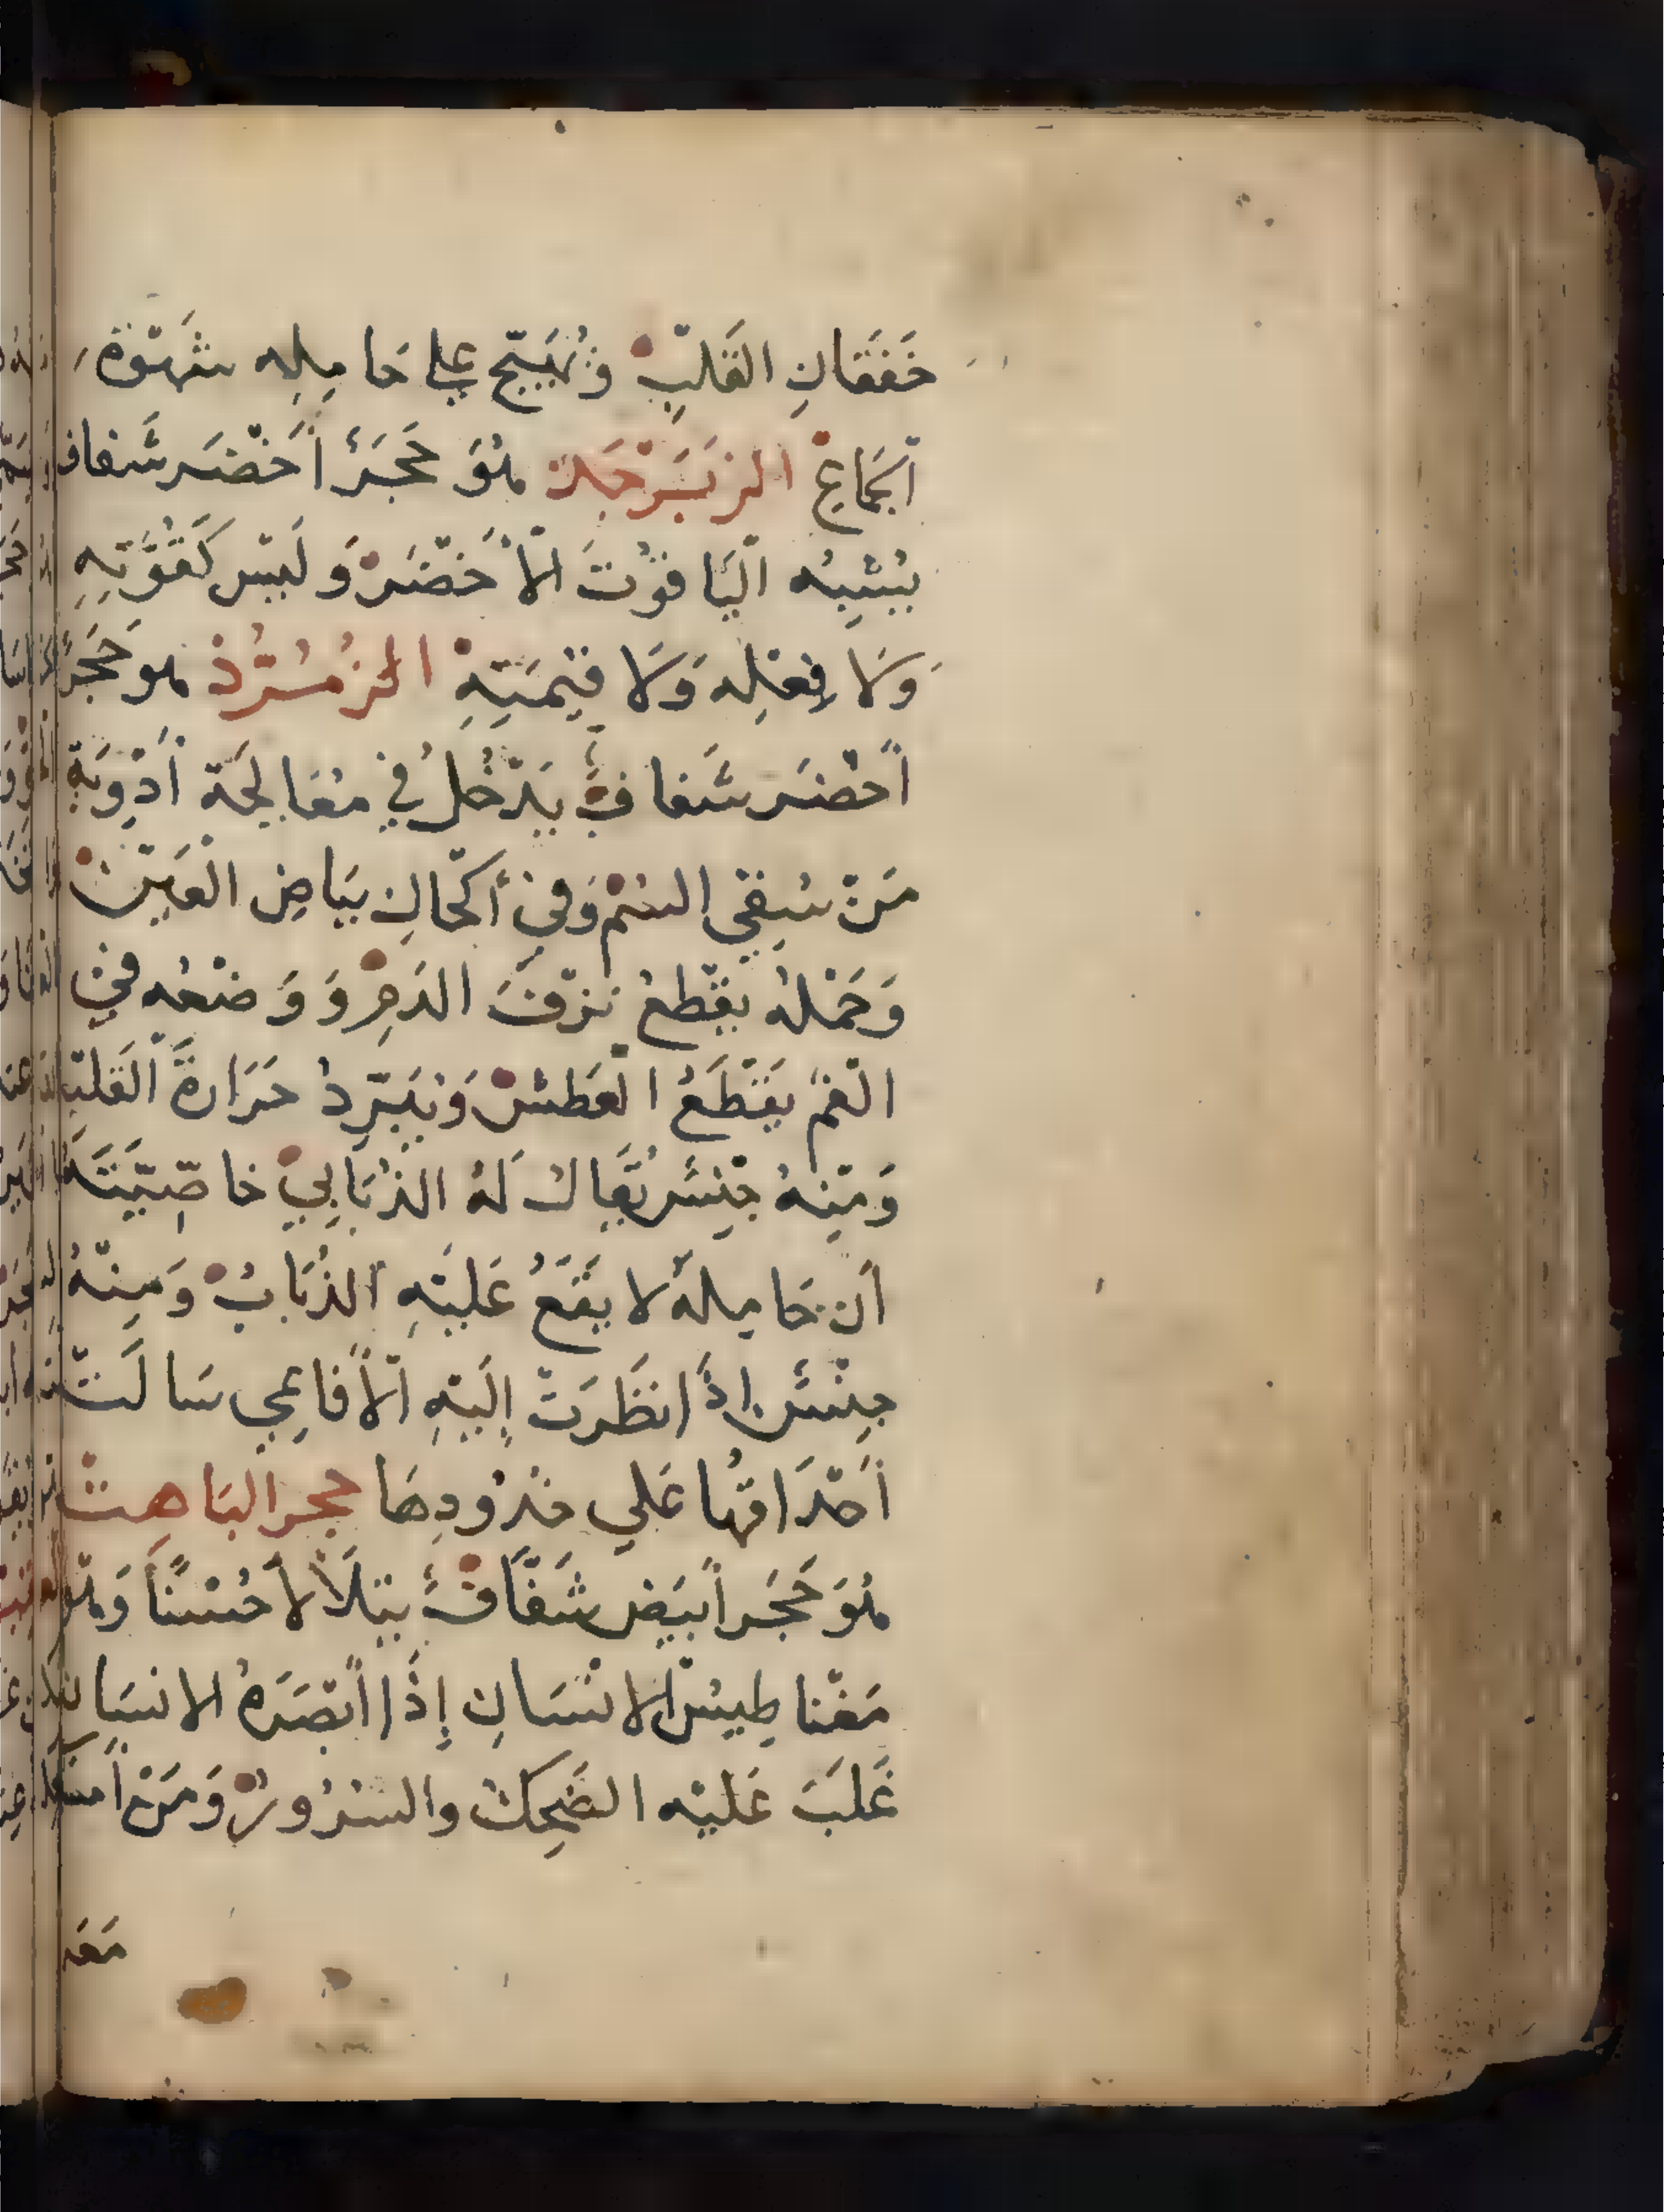 خَفَقَانِ القَلبِ وَيُهَيِّج علي حَامِلِه شَهْوَةَ
اَلجَمَاعِ الزبَرْجَدْ هُوَ حَجَرٌ أَخْضَر شَفاف
يُشْبِهُ اليَاقُوْتَ الأَخْضَرْ وَلَيْسَ كَقُوَّتِهِ
وَلَا فِعْلِه وَلَا قِيْمَتِهِ الزُمُرُّذْ هو حَجَرٌ
أخْضَر شَفافٌ يَدْخُلُ في مُعَالجَة أَدْوِيَةِ
مَنْ سُقِيَ السُمْ وَفِيْ أكْحَالِ بَيَاضِ العَيْنْ
وَحَمْلهُ يقْطعُ نزْفَ الدَمِ وَ وَضْعُه فِيْ
الْفَمِ يَقْطَعُ العَطشْ وَيُبَرِّدُ حَرَارةَ القَلبْ
وَمِنْهُ جِنْسٌ يُقَالُ لَهُ الذُبَابِيْ خاصِّيَّتَهُ
أن حَامِلهُ لا يَقَعُ عَليْهِ الذُبَابُ وَمِنْهُ
جِنْسٌ إذَا نظَرَتْ إِلَيْهِ الأَفَاعِي سَالَتْ
أَحْدَاقهُا عَلي خدُودِهَا حجر البَاهِتْ
هُوَ حَجَر أبيَض شَفَّافٌ يتَلَأْلأ حُسْنًا وَهُوَ
مَغْناطِيسُ الانْسَانِ إِذَا أبْصَرَهُ الانسَان
غَلَبَ عَليْه الضَحِكُ والسُرُورْ وَمَنْ أمْسَكَهُ
مَعَه